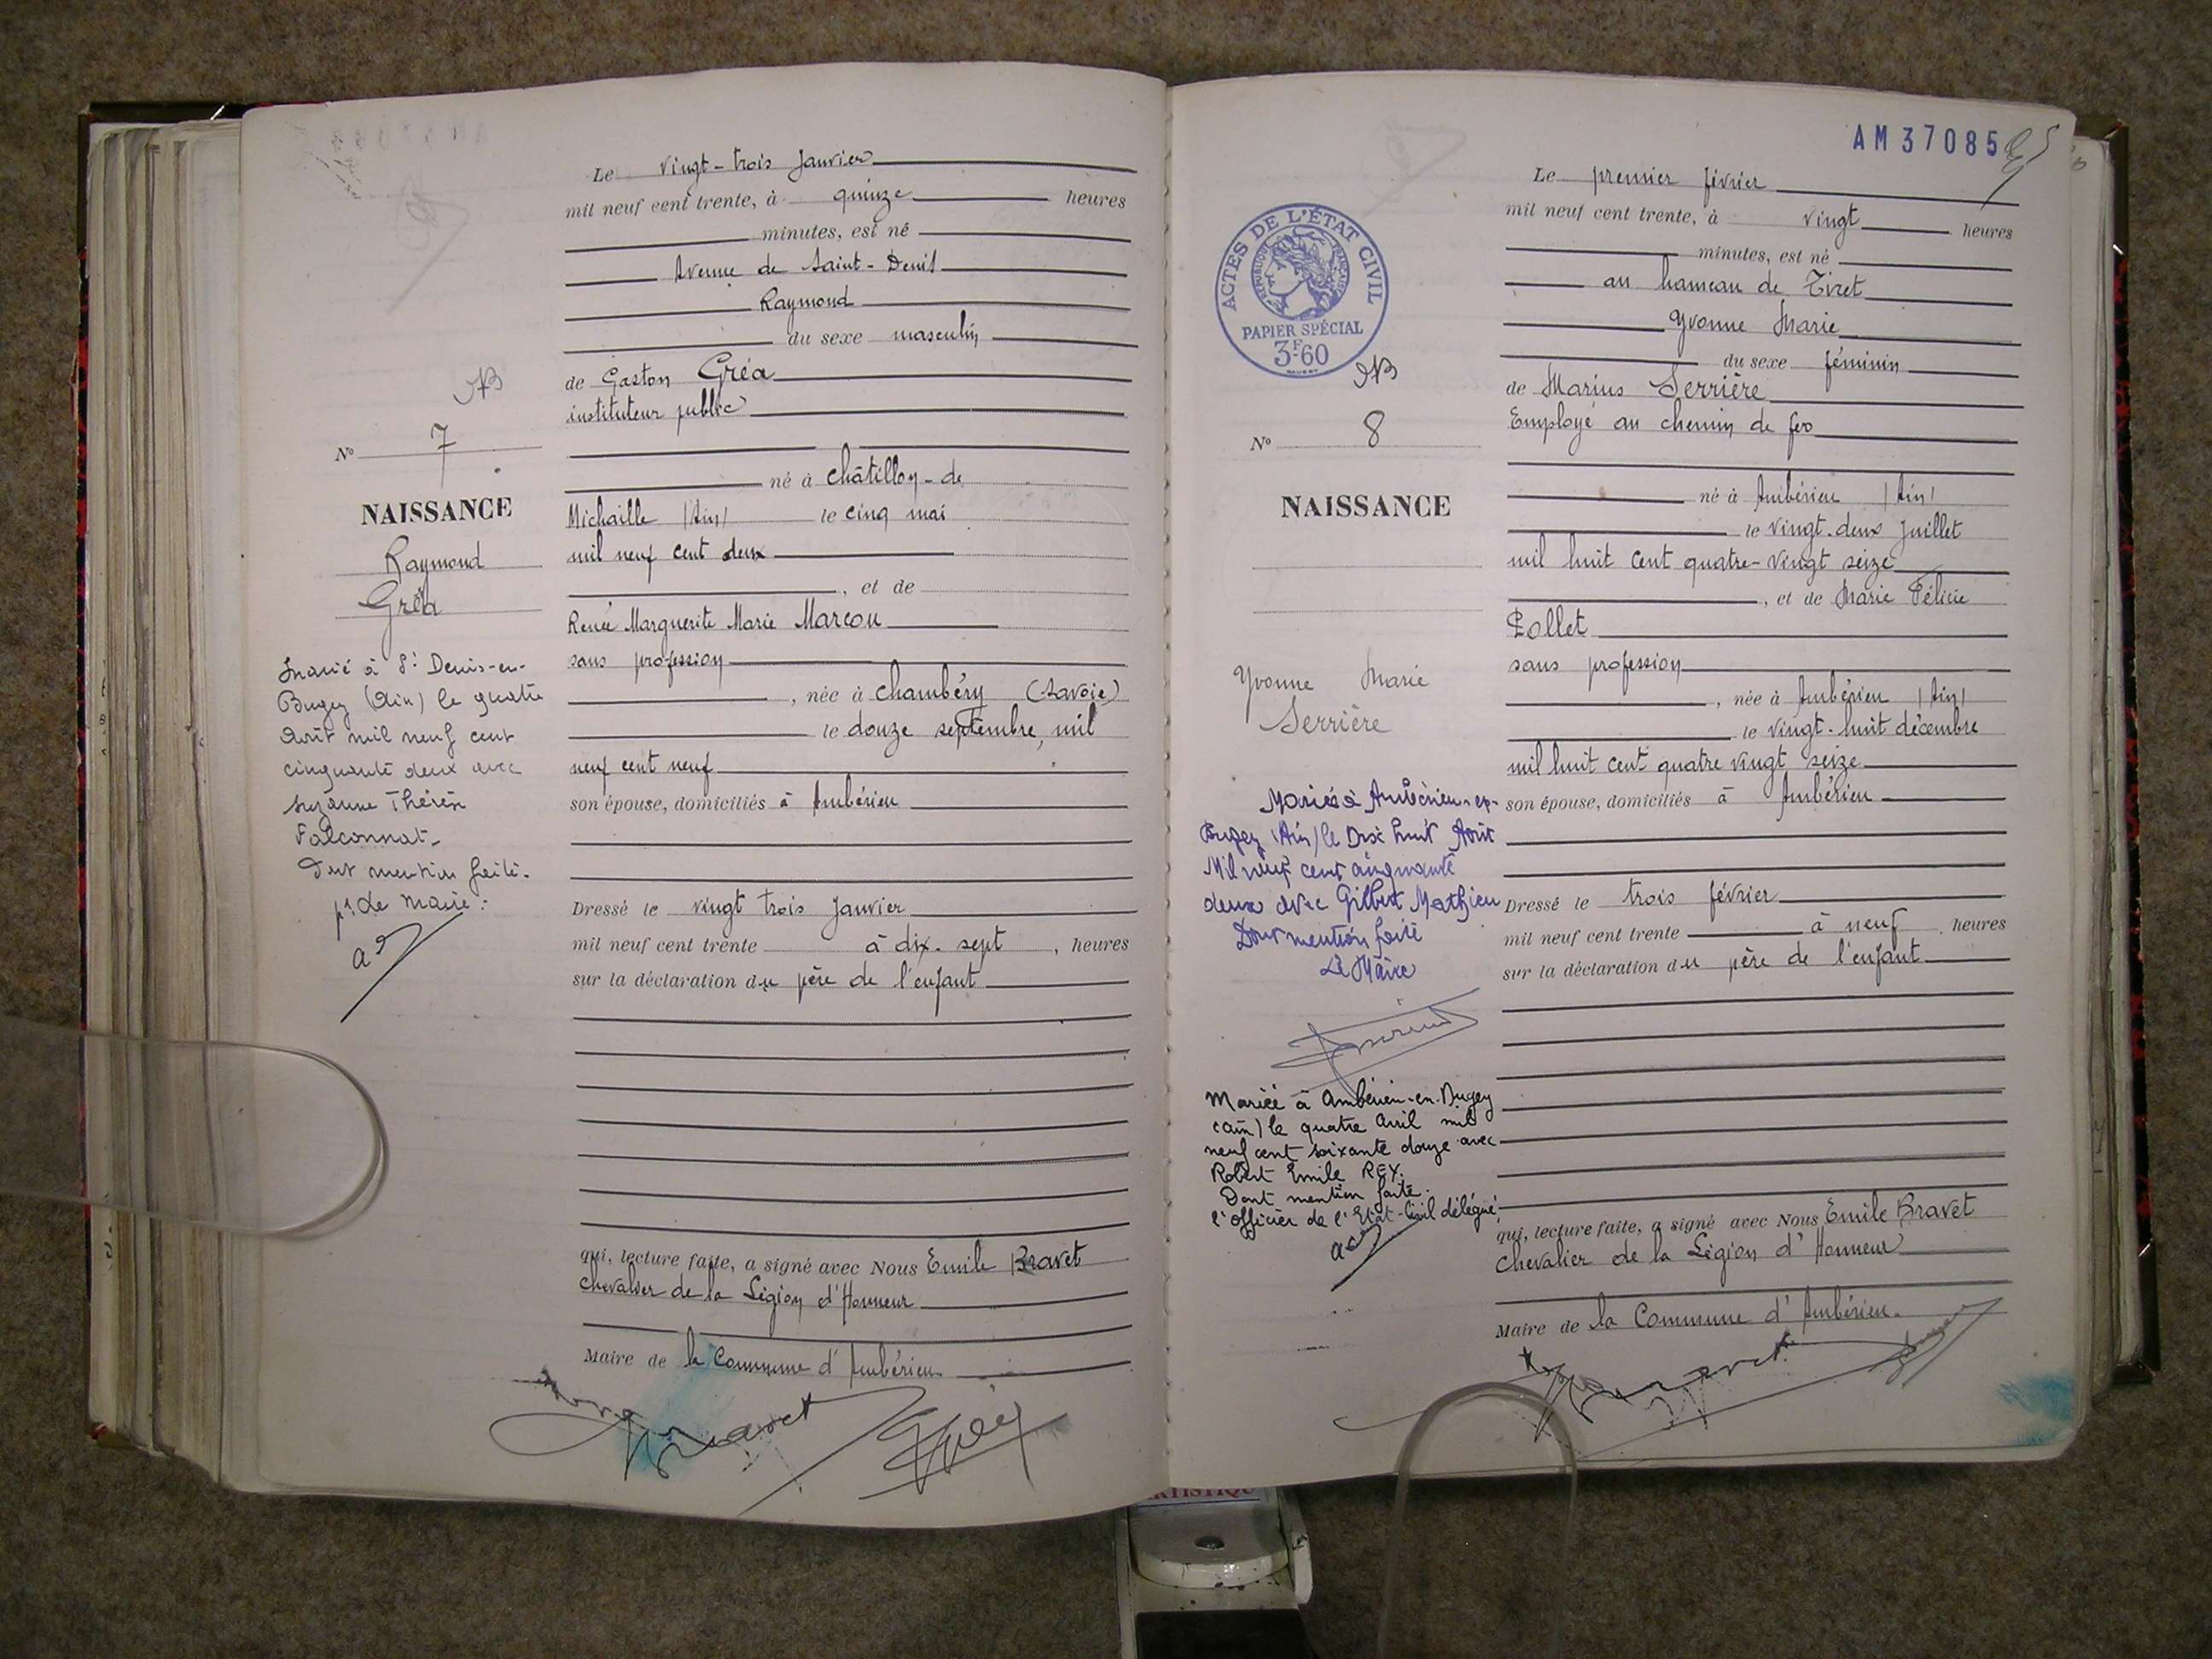 Le vingt-trois janvier
mil neuf cent trente, à quinze heures
minutes, est né
Avenue de Saint-Denis
Raymond
du sexe masculin
de Gaston Gréa
instituteur public
né à Châtillon-de
Michaille (Ain) le cinq mai
mil neuf cent deux
, et de
Renée Marguerite Marie Marcou
sans profession
, née à Chambéry (Savoie)
le douze septembre, mil
neuf cent neuf
son épouse, domiciliés à Ambérieu
Dressé le vingt trois janvier
mil neuf cent trente à dix-sept, heures
sur la déclaration du père de l'enfant
qui, lecture faite, a signé avec Nous Emile Bravet
Chevalier de la Légion d'Honneur
Maire de la Commune d'Ambérieu
Bravet
Gréa
N° 7
NAISSANCE
Raymond
Gréa
Marié à St Denis-en-
Bugey (Ain) le quatre
Août mil neuf cent
cinquante deux avec
Suzanne Thérèse
Falconnat-
Dont mention faite.
pr le Maire :
AM 37085
ACTES DE L'ÉTAT CIVIL
RÉPUBLIQUE FRANÇAISE
PAPIER SPÉCIAL
3F60
Le premier février
mil neuf cent trente, à vingt heures
minutes, est né
au hameau de Tiret
Yvonne Marie
du sexe féminin
de Marius Serrière
Employé au chemin de fer
né à Ambérieu (Ain)
le vingt-deux juillet
mil huit cent quatre-vingt seize
, et de Marie Félicie
Pollet
sans profession
, née à Ambérieu (Ain)
le vingt-huit décembre
mil huit cent quatre vingt seize
son épouse, domiciliés à Ambérieu
Dressé le trois février
mil neuf cent trente à neuf, heures
sur la déclaration du père de l'enfant
qui, lecture faite, a signé avec Nous Emile Bravet
Chevalier de la Légion d'Honneur
Maire de la Commune d'Ambérieu.
Bravet
N° 8
NAISSANCE
Yvonne Marie
Serrière
Mariée à Ambérieu-en-
Bugey (Ain) le Dix huit Août
Mil neuf cent cinquante
deux avec Gilbert Mathieu
Dont mention faite
Le Maire
Mariée à Ambérieu-en-Bugey
(Ain) le quatre Avril mil
neuf cent soixante douze avec
Robert Emile REY.
Dont mention faite.
l'Officier de l'Etat-Civil délégué,